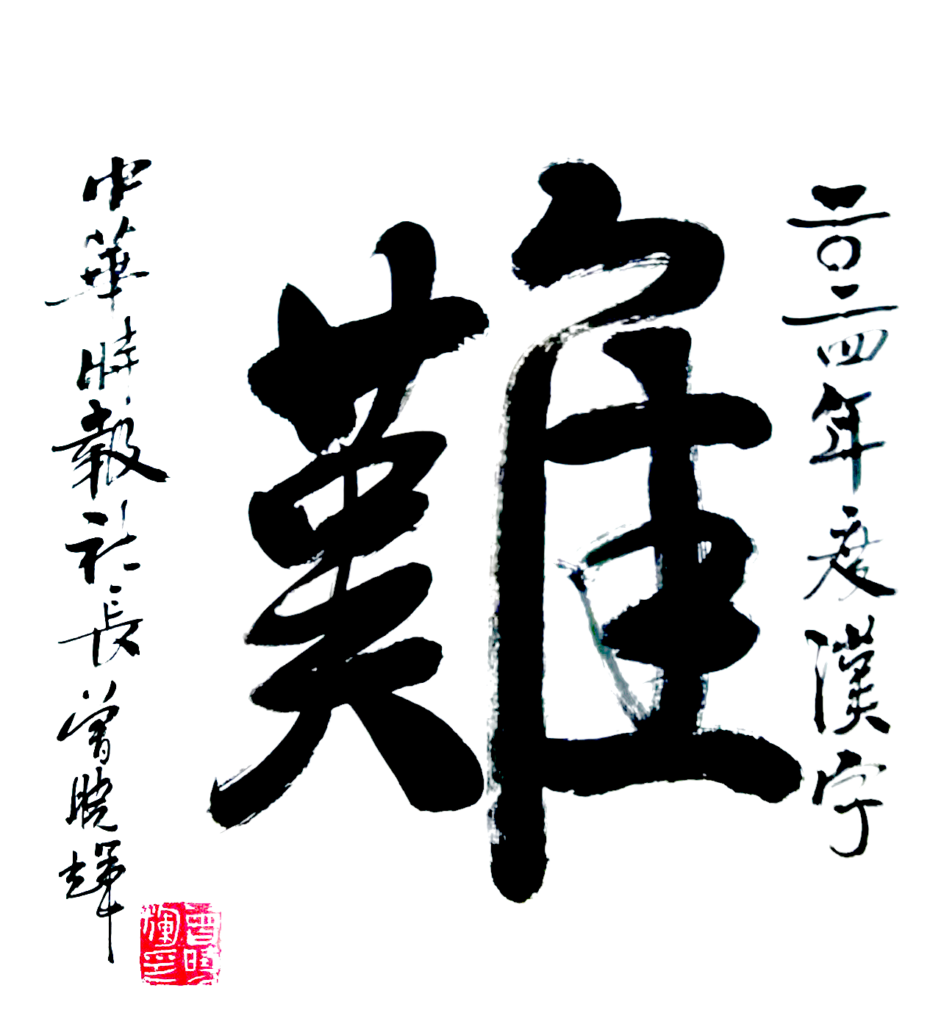 二〇二四年度漢字
難
中華時報社長曾曉輝